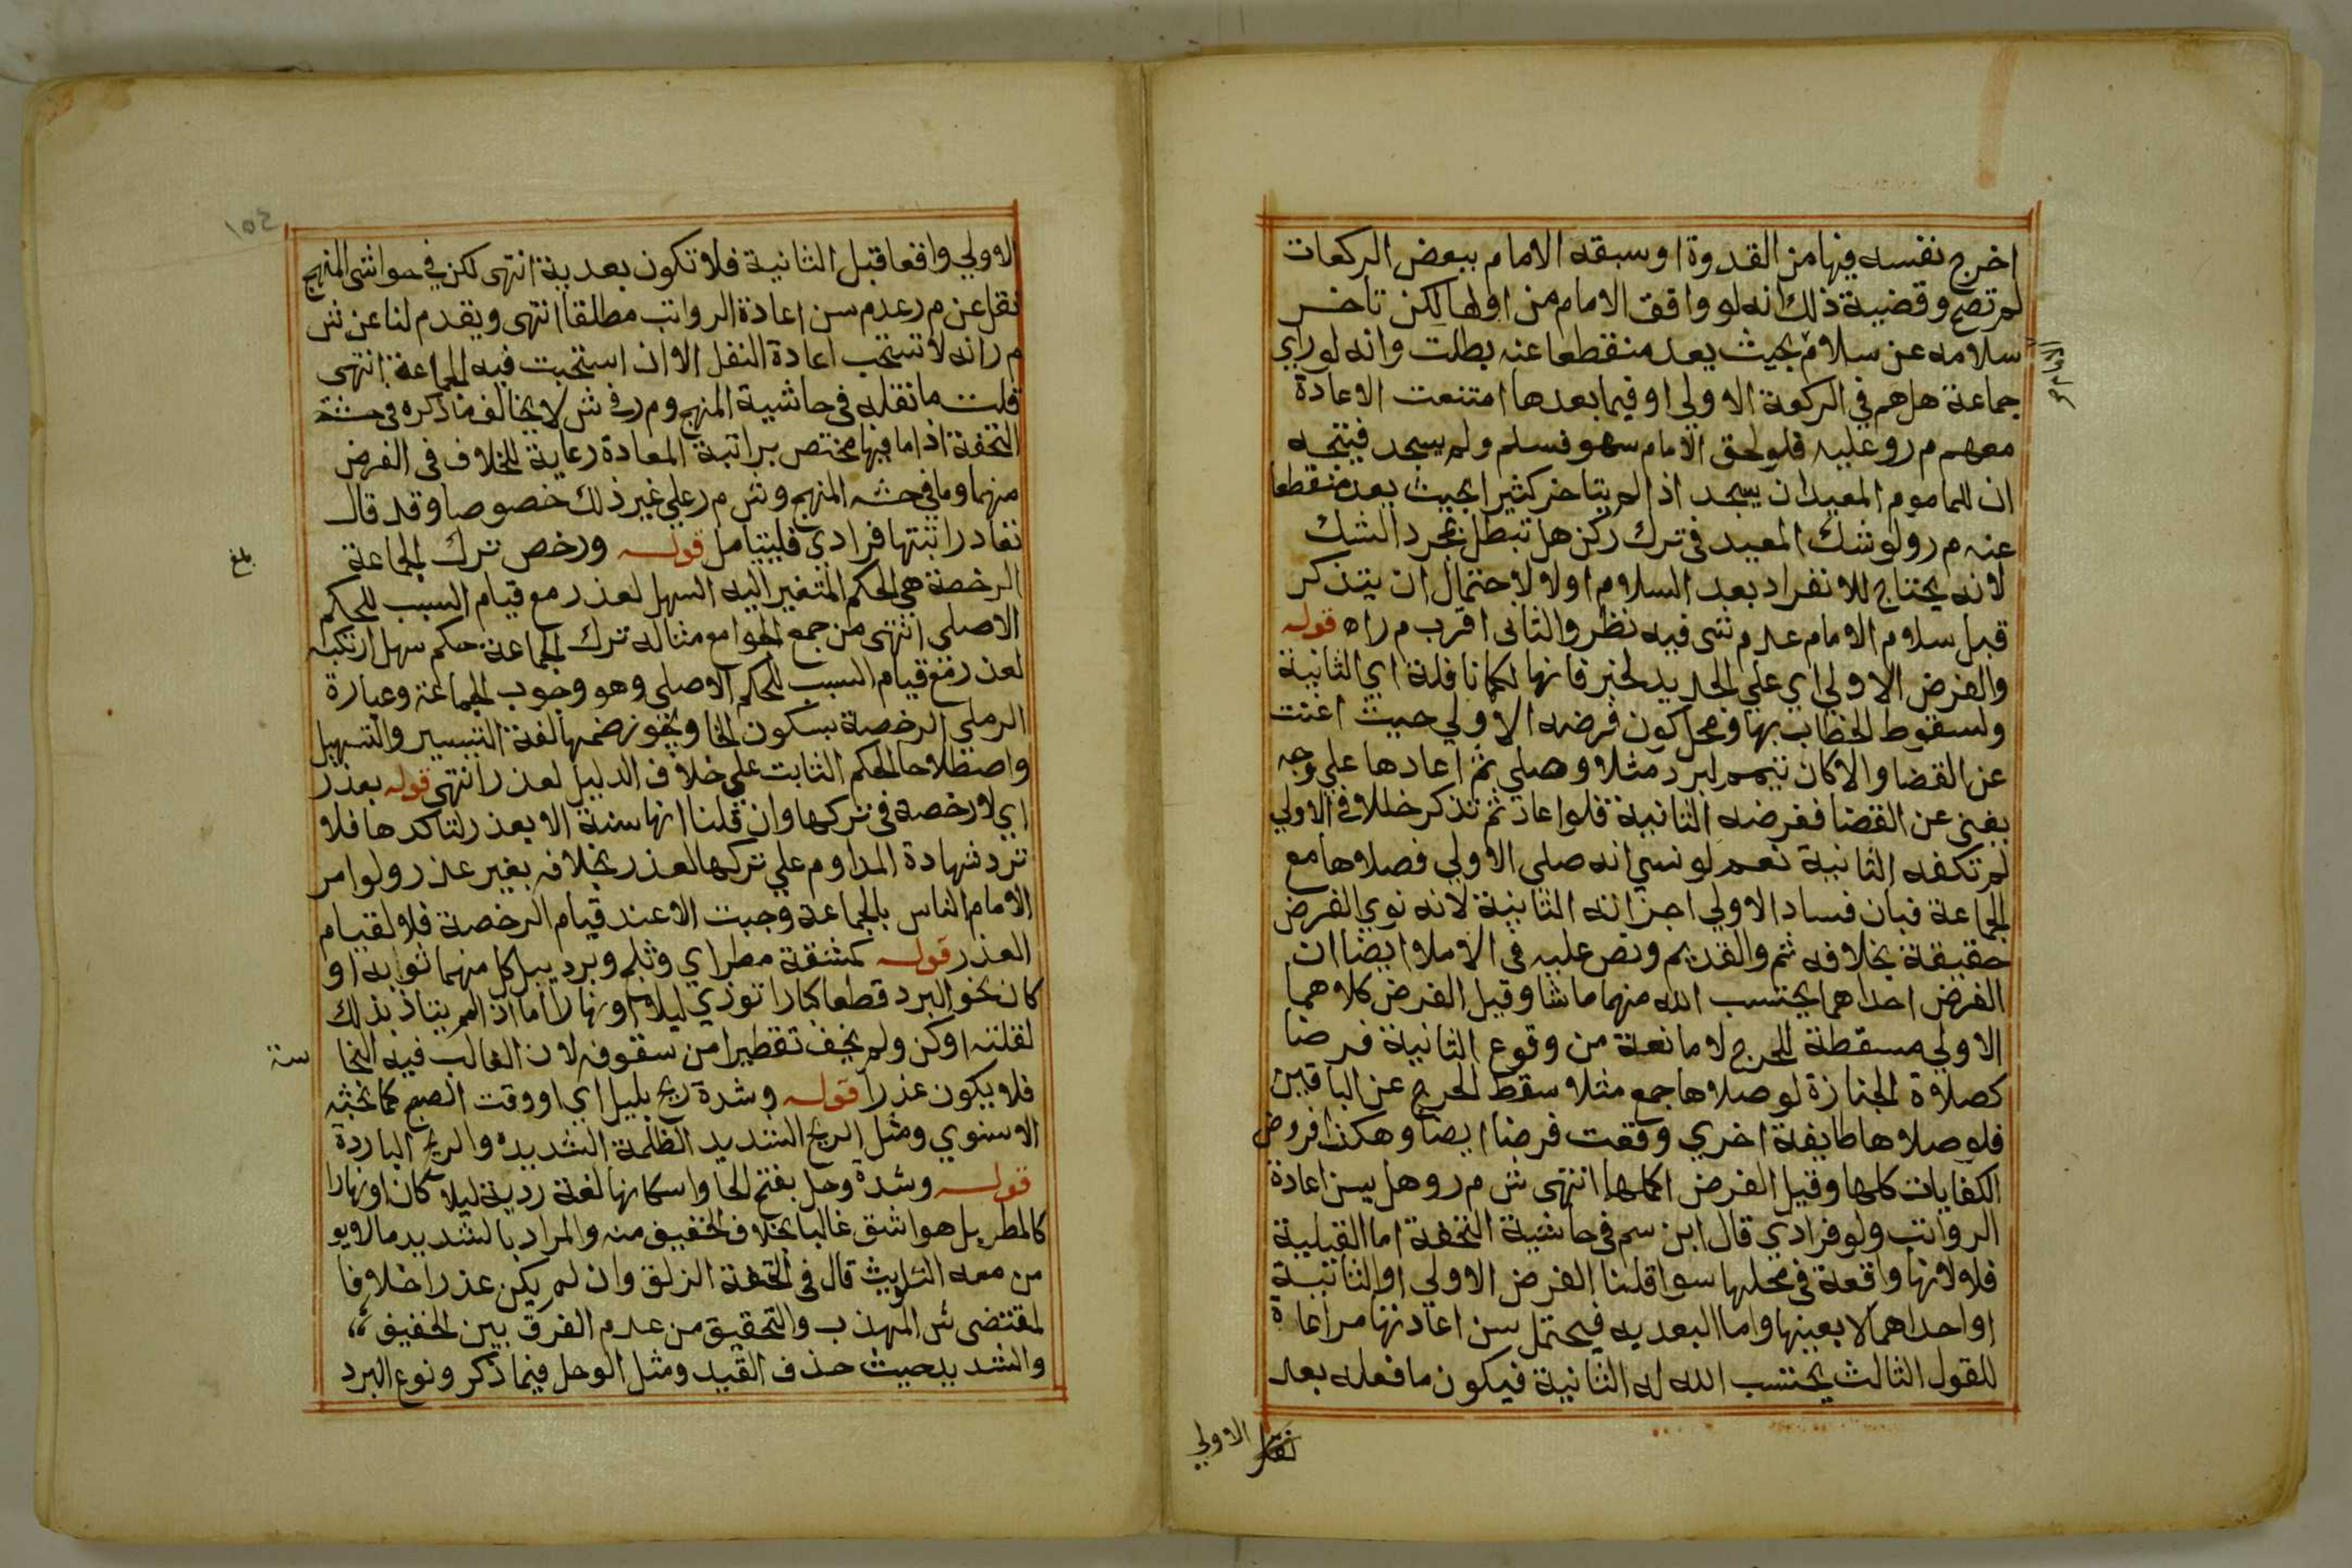 اخرج نفسه فيها من القدوة او سبقه الامام ببعض الركعات
لم تصح وقضية ذلك انه لو وافق الامام من اولها لكن تاخر
سلامه عن سلام بحيث يعد منقطعا عنه بطلت وانه لو راي
الامام صح
جماعة هل هم في الركعة الاولي او فيما بعدها امتنعت الاعادة
معهم م ر وعليه فلو لحق الامام سهو فسلم ولم يسجد فيتجه
ان للماموم المعيد ان يسجد اذا لم يتاخر كثيرا بحيث يعد منقطعا
عنه م ر ولو شك المعيد في ترك ركن هل تبطل بمجرد الشك
لانه يحتاج للانفراد بعد السلام او لا لاحتمال ان يتذكر
قبل سلام الامام عدم شي فيه نظر والثاني اقرب م ر اه قوله
والفرض الاولي اي علي الجديد لخبر فانها لكما نافلة اي الثانية
ولسقوط الخطاب بها ومحل كون فرضه الاولي حيث اغنت
عن القضا والا كان تيمم لبرد مثلا وصلي ثم اعادها علي وجه
يغني عن القضا ففرضه الثانية فلو اعاد ثم تذكر خللا في الاولي
لم تكفه الثانية نعم لو نسي انه صلي الاولي فصلاها مع
الجماعة فبان فساد الاولي اجزاته الثانية لانه نوي الفرض
حقيقة بخلافه ثم والقديم ونص عليه في الاملا ايضا ان
الفرض احداهما يحتسب الله منهما ما شا وقيل الفرض كلاهما
الاولي مسقطة للحرج لا مانعة من وقوع الثانية فرضا
كصلاة الجنازة لو صلاها جمع مثلا سقط الحرج عن الباقين
فلو صلاها طايفة اخري وقعت فرضا ايضا وهكذا فروض
الكفايات كلها وقيل الفرض اكملها انتهى ش م ر وهل يسن اعادة
الرواتب ولو فرادي قال ابن سم في حاشية التحفة اما القبلية
فلا لانها واقعة في محلها سوا قلنا الفرض الاولي او الثانية
او احداهما لا بعينها واما البعديه فيحتمل سن اعادتها مراعاة
للقول الثالث يحتسب الله له الثانية فيكون ما فعله بعد
الاولي
الاولي واقعا قبل الثانية فلا تكون بعدية انتهى لكن في حواشي المنهج
نقل عن م ر عدم سن اعادة الرواتب مطلقا انتهى ويقدم لنا عن ش
م ر انه لا تستحب اعادة النفل الا ان استحبت فيه الجماعة انتهى
قلت ما نقله في حاشية المنهج وم ر في ش لا يخالف ما ذكره في حشة
التحفة اذ ما فيها مختص براتبة المعادة رعاية للخلاف في الفرض
منهما وما في حشه المنهج وش م ر علي غير ذلك خصوصا وقد قال
تعاد راتبتها فرادي فليتامل قوله ورخص ترك الجماعة
بلغ
الرخصة هي الحكم المتغير اليه السهل لعذر مع قيام السبب للحكم
الاصلي انتهى من جمع الجوامع مثاله ترك الجماعة حكم سهل ارتكبه
لعذر مع قيام السبب للحكم الاصلي وهو وجوب الجماعة وعبارة
الرملي الرخصة بسكون الخا ويجوز ضمها لغة التيسير والتسهيل
واصطلاحا الحكم الثابت علي خلاف الدليل لعذر انتهى قوله بعذر
اي لا رخصة في تركها وان قلنا انها سنة الا بعذر لتاكدها فلا
ترد شهادة المداوم علي تركها لعذر بخلافه بغير عذر ولو امر
الامام الناس بالجماعة وجبت الا عند قيام الرخصة فلا لقيام
العذر قوله كمشقة مطر اي وثلج وبرد يبل كل منهما ثوابه او
كان نحو البرد قطعا كبارا تؤذي ليلا او نهارا اما اذا لم يتاذ بذلك
لقلته او كن ولم يخف تقطيرا من سقوفه لان الغالب فيه النجا
سة
فلا يكون عذرا قوله وشدة ريح بليل اي او وقت الصبح كما بحثه
الاسنوي ومثل الريح الشديد الظلمة الشديده والريح الباردة
قوله وشدة وحل بفتح الحا واسكانها لغة ردية ليلا كان او نهارا
كالمطر بل هو اشق غالبا بخلاف الخفيف منه والمراد بالشديد ما لا يو
من معه التلويث قال في التحفة الزلق وان لم يكن عذرا خلافا
لمقتضى ش المهذب والتحقيق من عدم الفرق بين الخفيف
والشديد بحيث حذف القيد ومثل الوحل فيما ذكر ونوع البرد